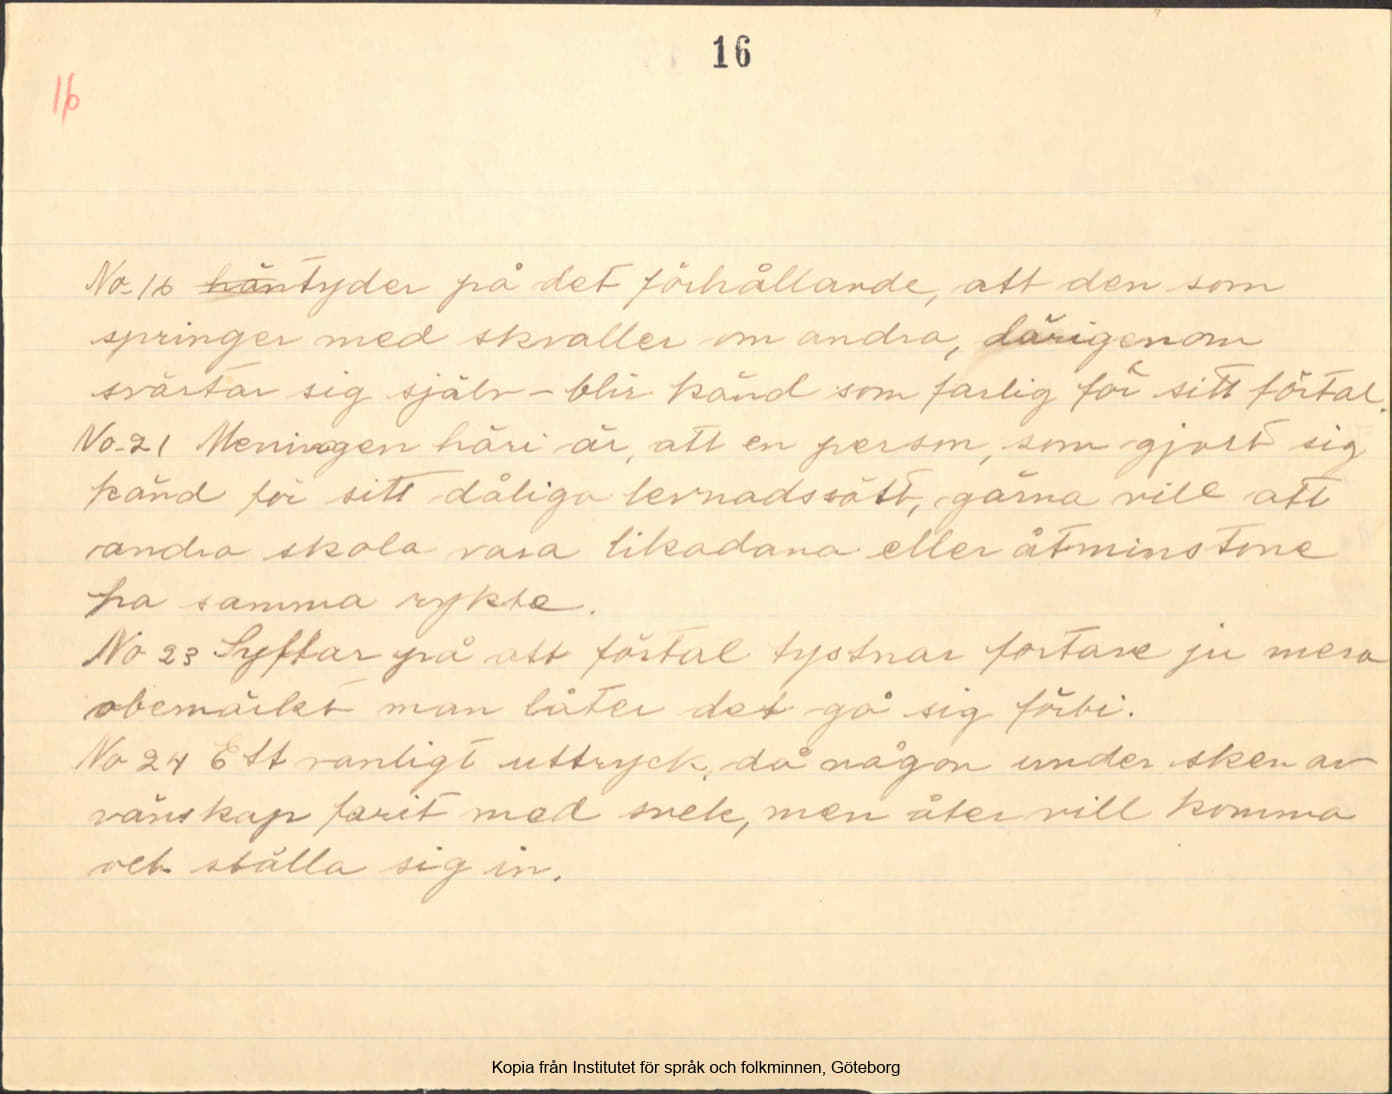 16
16
No 16 häntyder på det förhållande, att den som
springer med skvaller om andra, därigenom
svärtar sig själv – blir känd som farlig för sitt förtal.
No 21 Meningen häri är, att en person, som gjort sig
känd för sitt dåliga levnadssätt, gärna vill att
andra skola vara likadana eller åtminstone
ha samma rykte.
No 23 Syftar på att förtal tystnar fortare ju mera
obemärkt man låter det gå sig förbi.
No 24 Ett vanligt uttryck, då någon under sken av
vänskap farit med svek, men åter vill komma
och ställa sig in.
Kopia från Institutet för språk och folkminnen, Göteborg